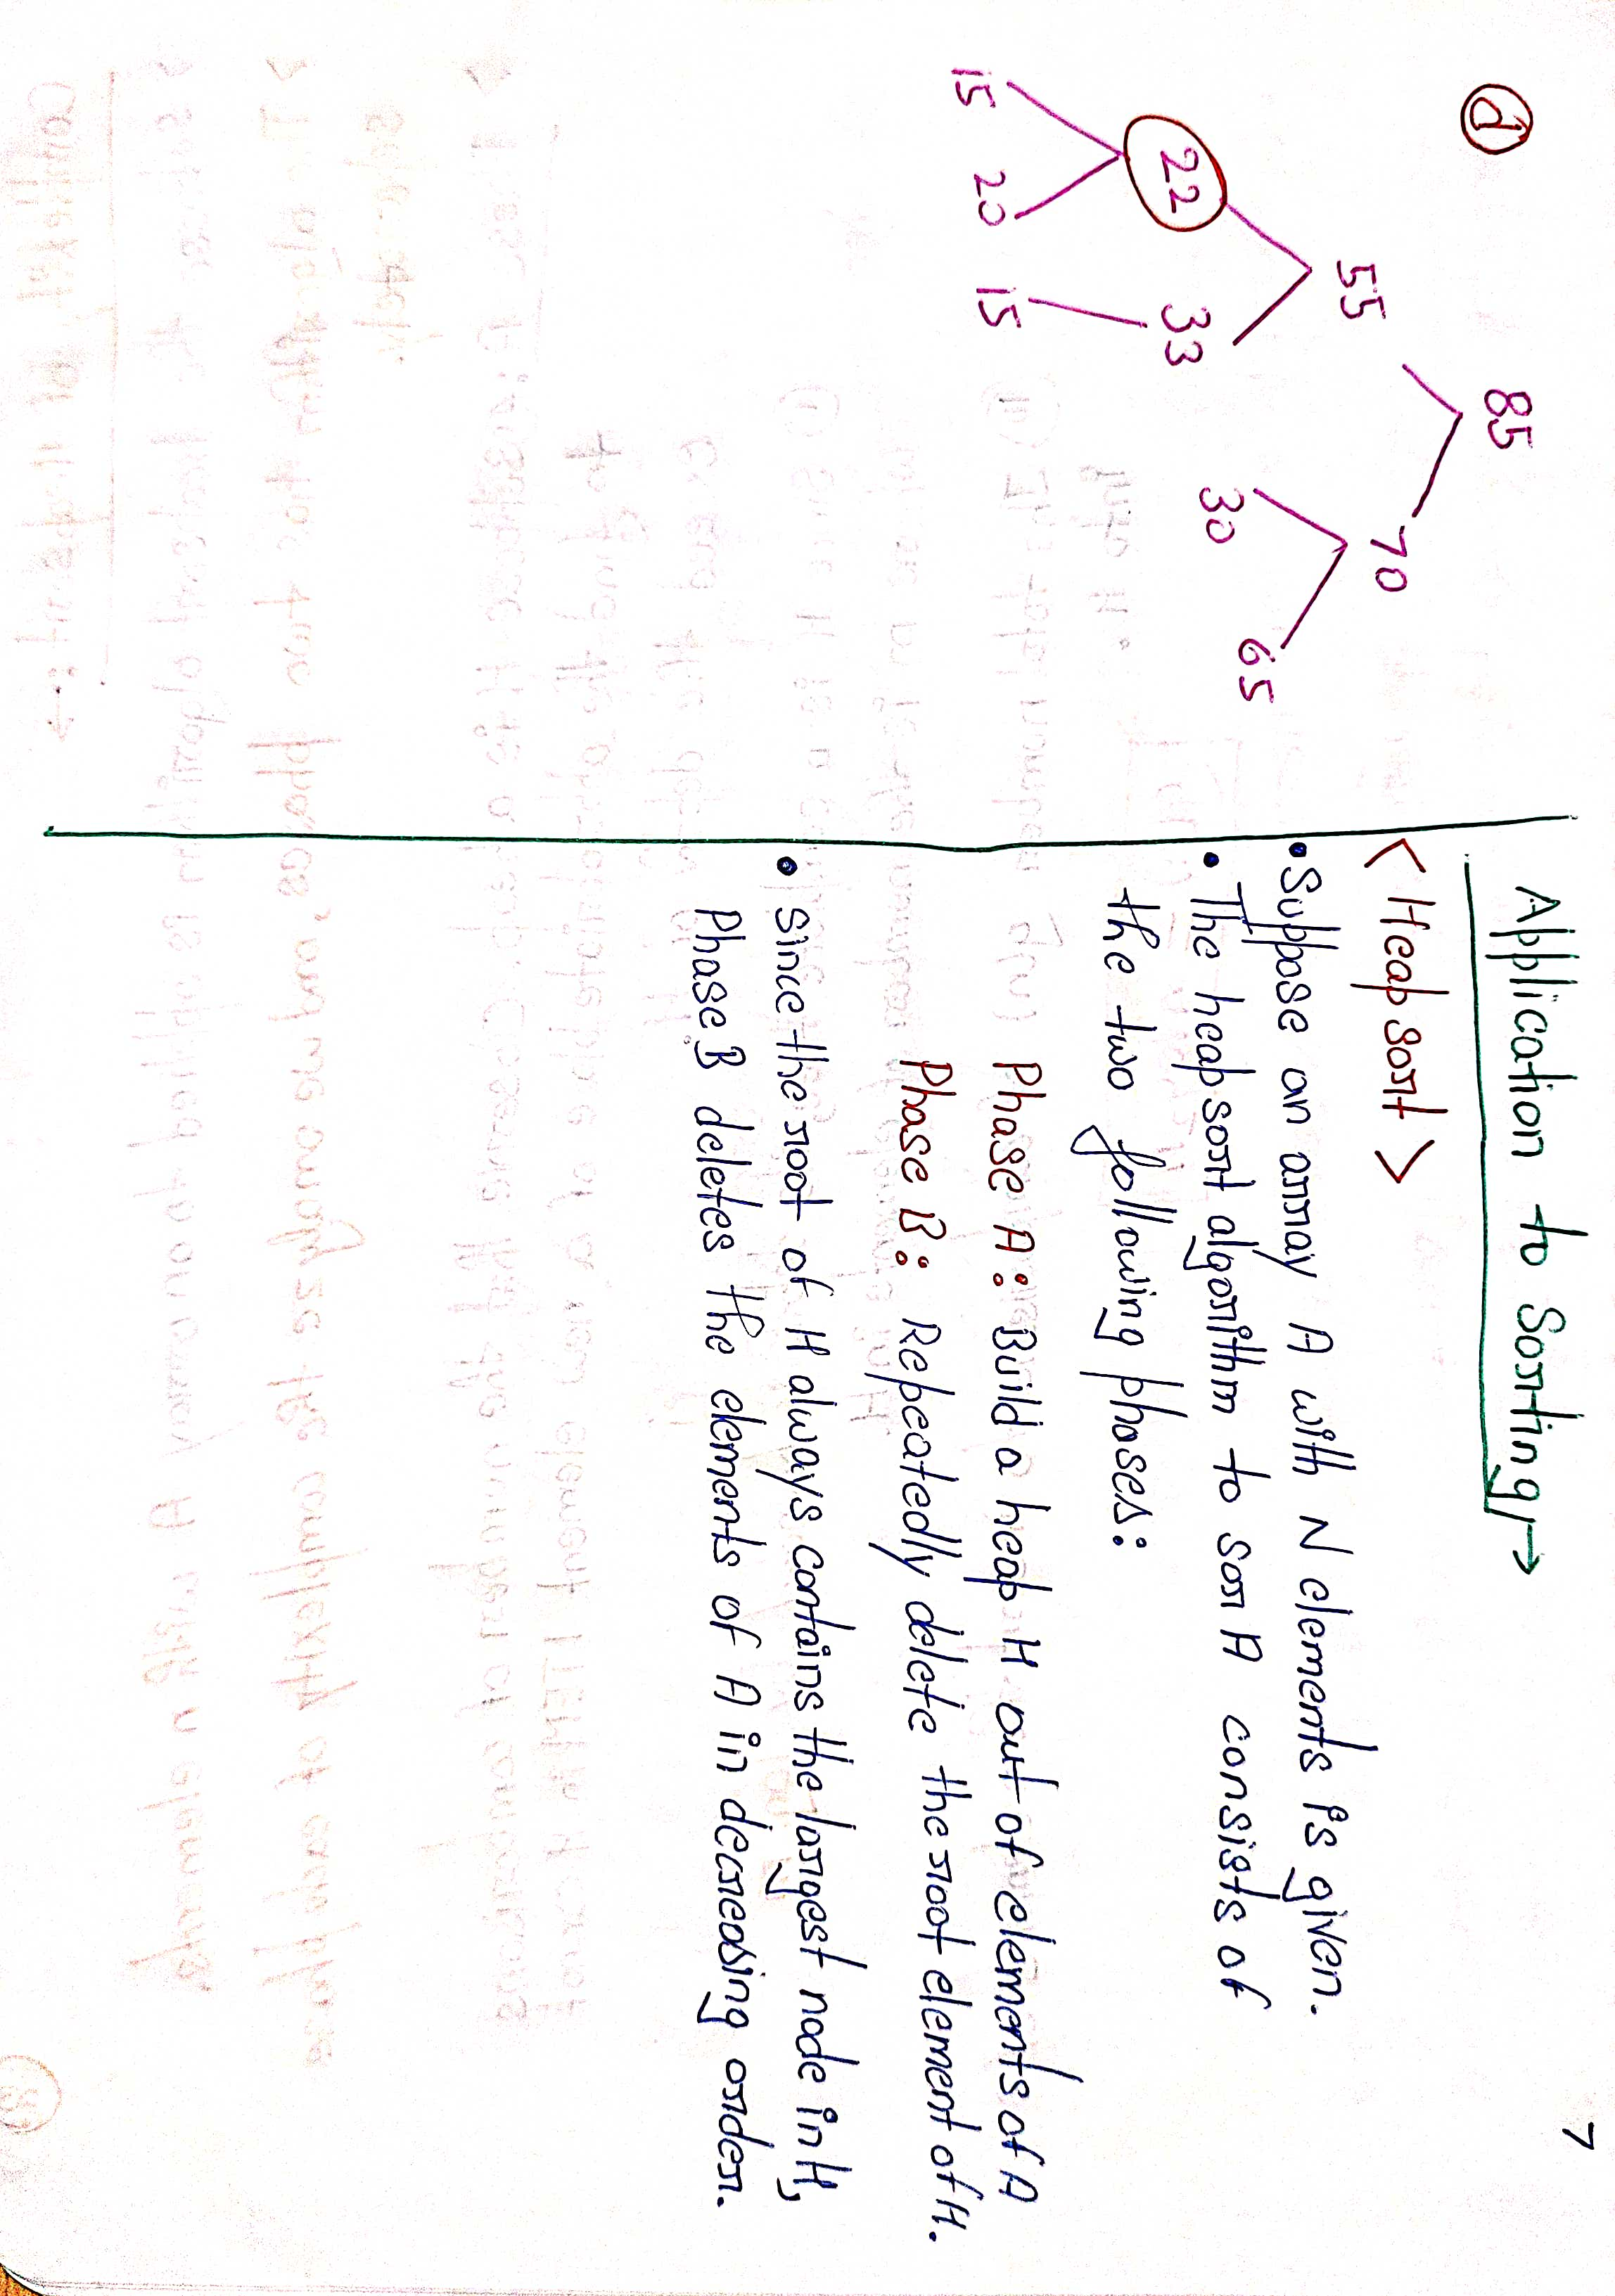 7
d
85
55 70
22 33 30 65
15 20 15
Application to Sorting →
< Heap sort >
• Suppose an array A with N elements is given.
• The heap sort algorithm to sort A consists of
the two following phases:
Phase A: Build a heap H out of elements of A
Phase B: Repeatedly delete the root element of H.
• Since the root of H always contains the largest node in H,
Phase B deletes the elements of A in decreasing order.